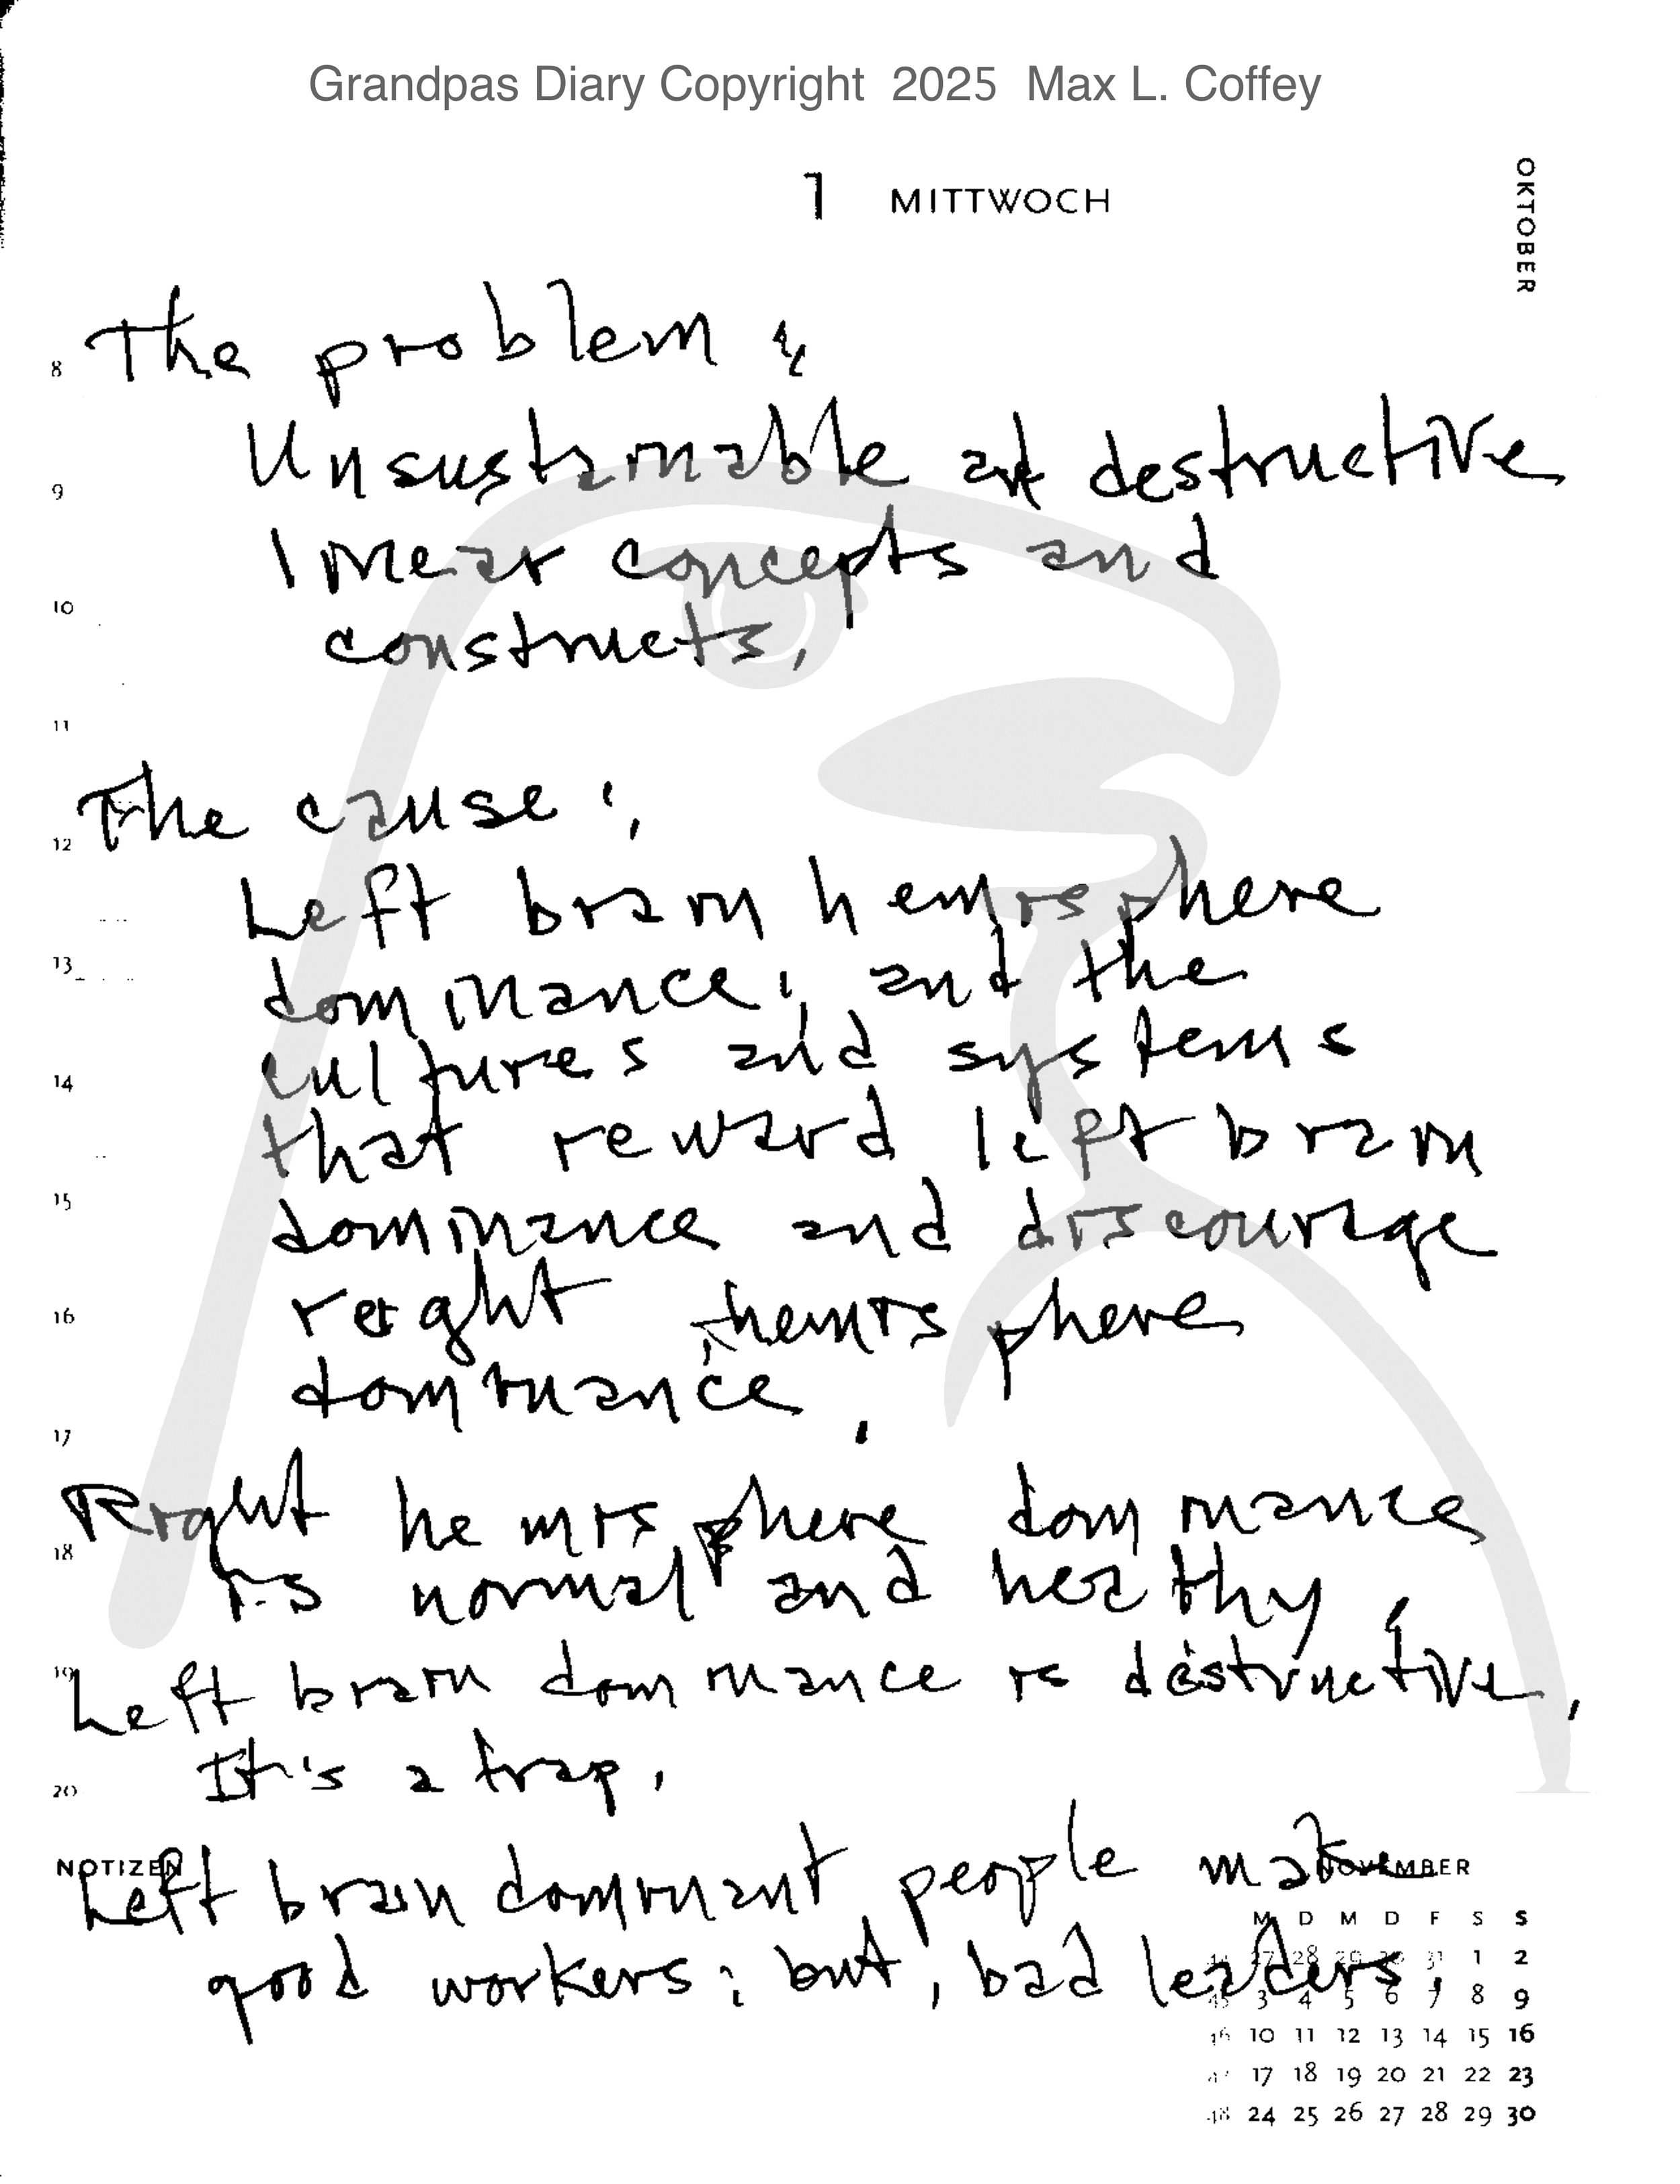 Grandpas Diary Copyright 2025 Max L. Coffey
1 MITTWOCH
OKTOBER
8 The problem :
Unsustainable and destructive
9
linear concepts and
10
constructs.
11
The cause :
12
Left brain hemisphere
13
dominance; and the
cultures and systems
14
that reward left brain
15
dominance and discourage
16 right hemisphere
dominance.
17
Right hemisphere dominance
18
is normal and healthy.
19
Left brain dominance is destructive.
It's a trap.
20
NOTIZEN NOVEMBER
Left brain dominant people make
M D M D F S S
good workers; but, bad leaders.
44 27 28 29 30 31 1 2
45 3 4 5 6 7 8 9
46 10 11 12 13 14 15 16
47 17 18 19 20 21 22 23
48 24 25 26 27 28 29 30